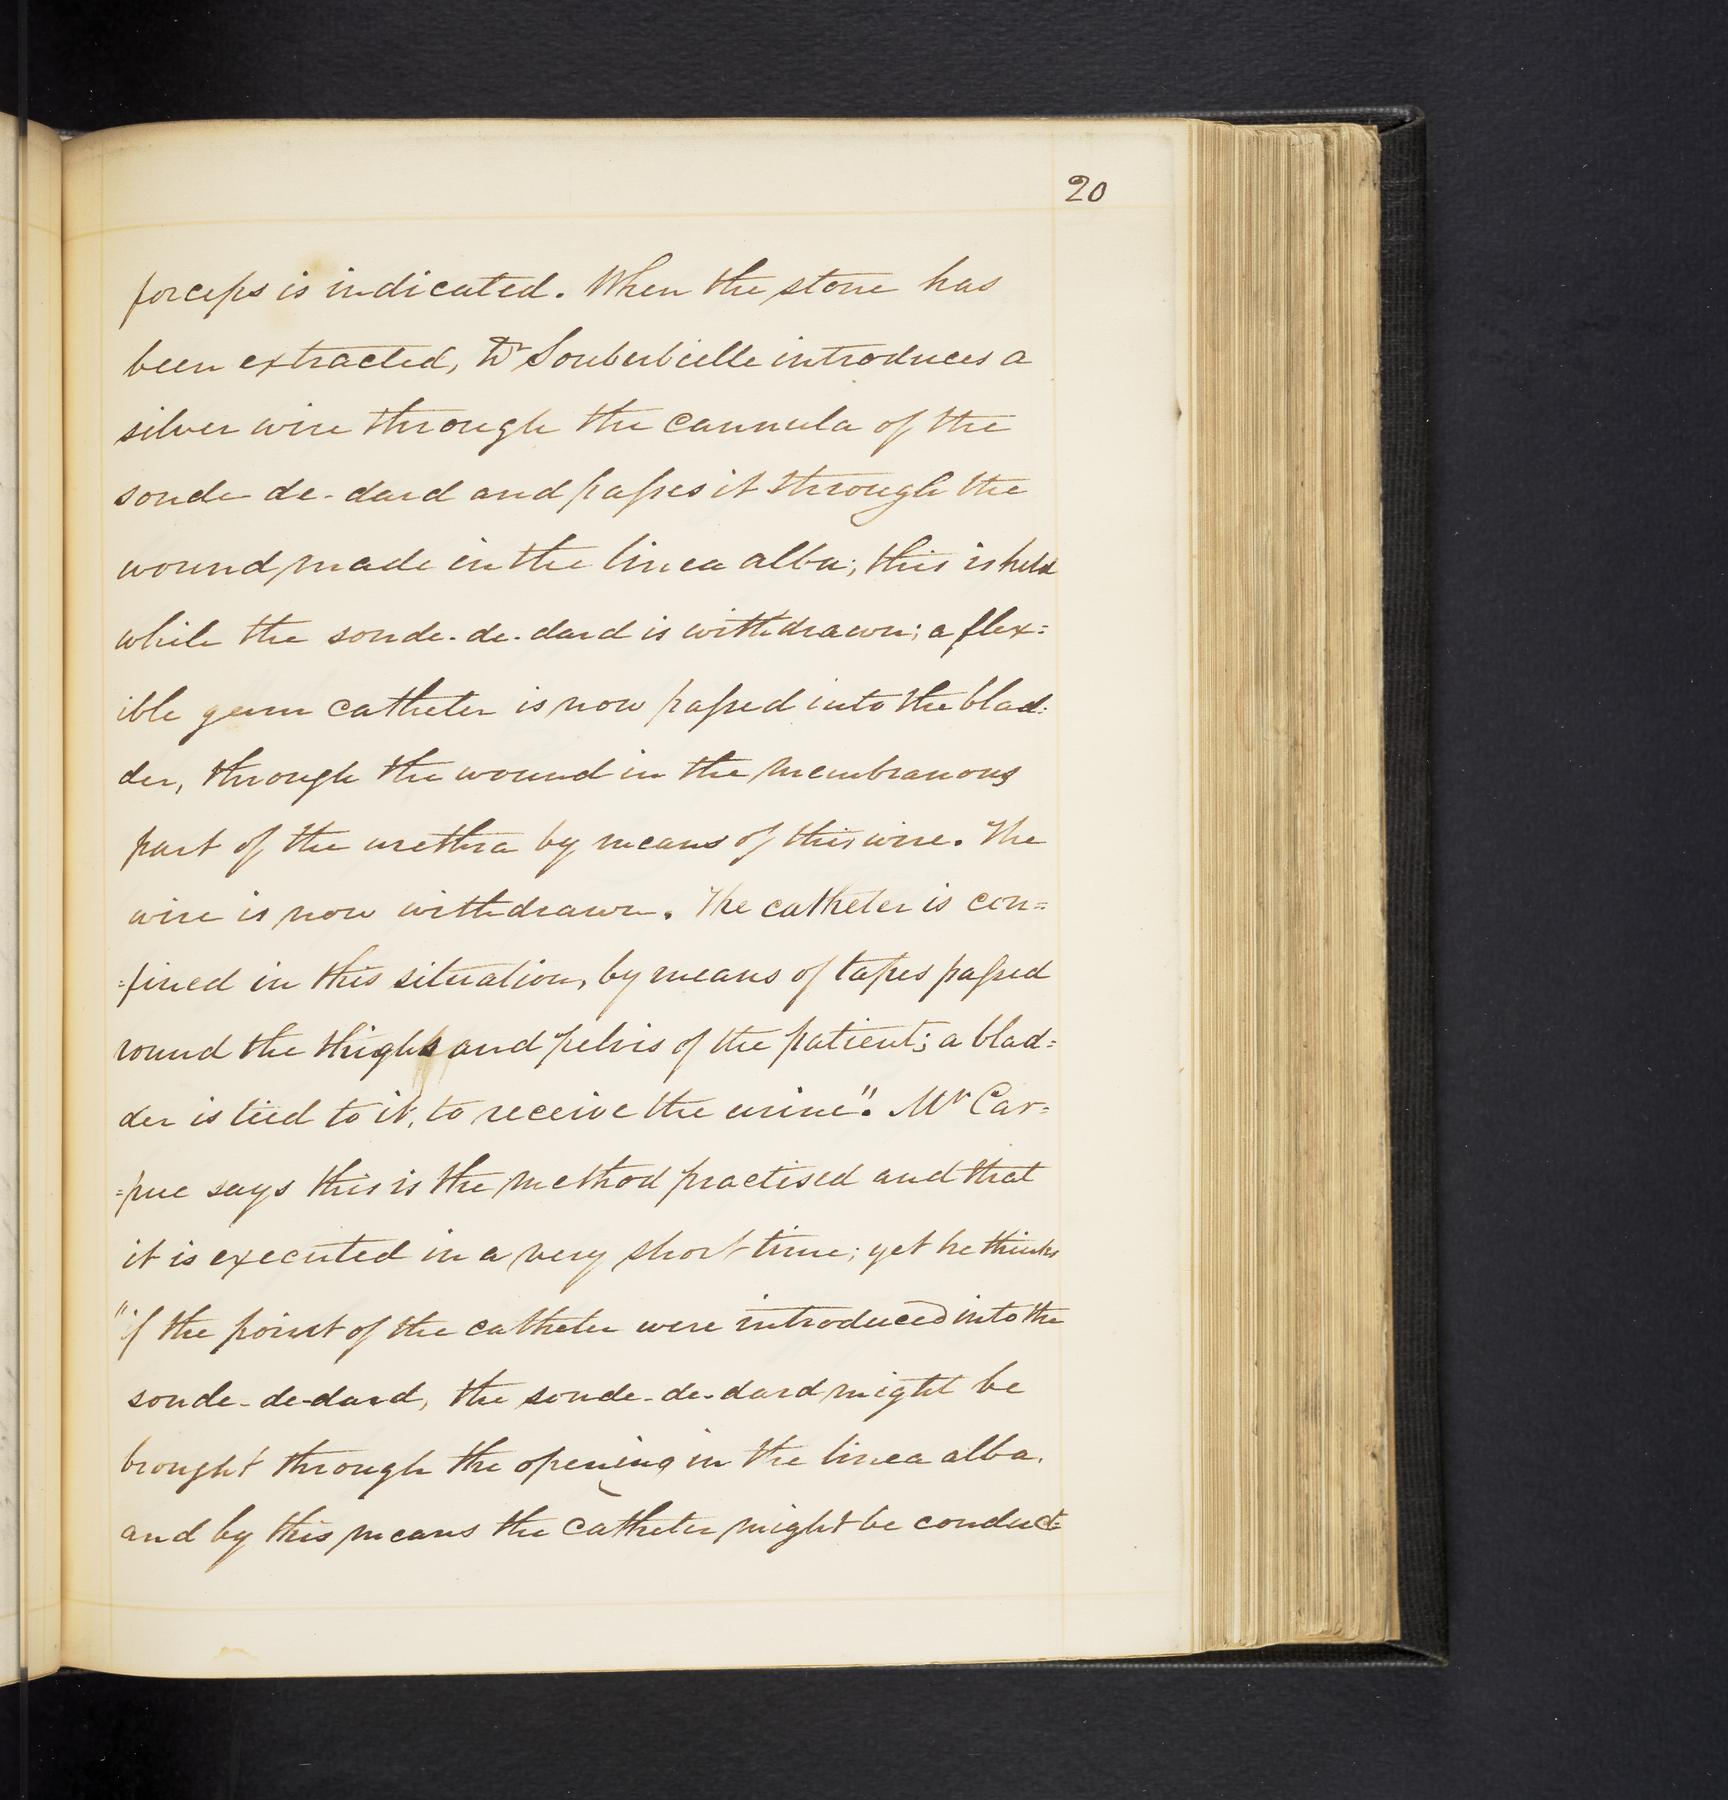 20
forceps is indicated. When the stone has
been extracted, Dr Souberbielle introduces a
silver wire through the cannula of the
sonde de-dard and passes it through the
wound made in the linea alba; this is held
while the sonde-de-dard is withdrawn; a flex=
ible gum catheter is now passed into the blad=
der, through the wound in the membranous
part of the urethra by means of this wire. The
wire is now withdrawn. The catheter is con=
=fined in this situation, by means of tapes passed
round the thighs and pelvis of the patient; a blad=
der is tied to it, to receive the urine". Mr Car=
=pue says this is the method practised and that
it is executed in a very short time; yet he thinks
"if the point of the catheter were introduced into the
sonde-de-dard, the sonde-de-dard might be
brought through the opening in the linea alba.
and by this means the catheter might be conduct=